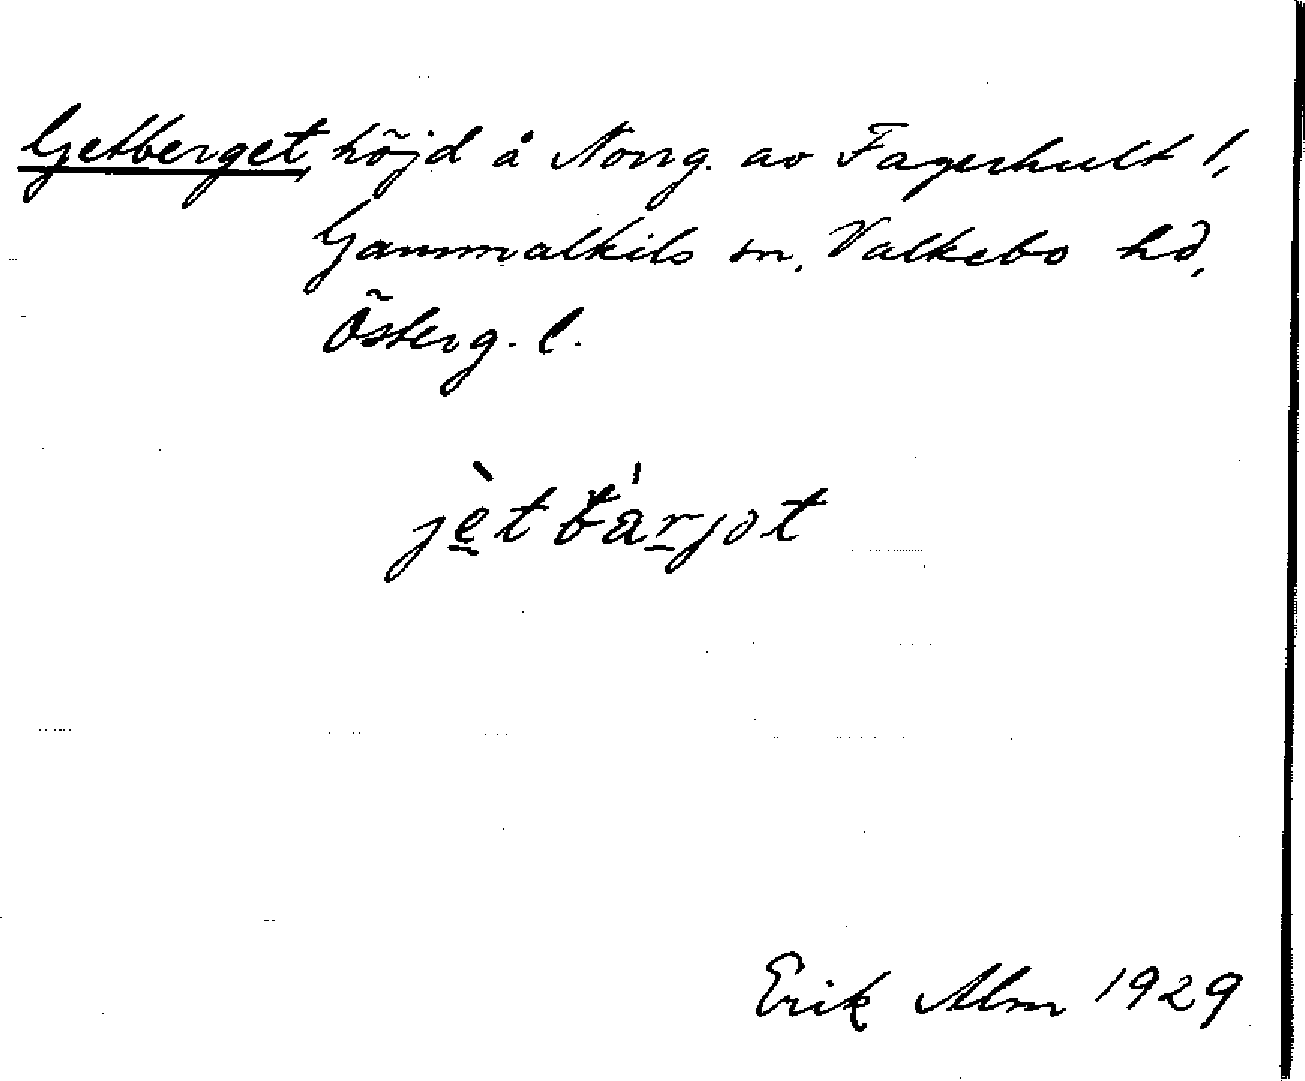 Getberget, höjd å Norrg. av Fagerhult 1,
Gammalkils sn, Valkebo hd,
Österg. l.
jèt bárjət
Erik Alm 1929